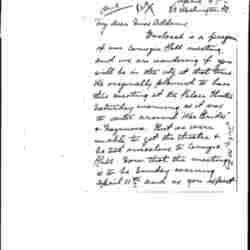 April
Washington Sq.
My dear Miss Addams:
Enclosed is a program
of our Carnegie Hall meeting
and we are wondering if you
will be in the city at that time.
We originally planned to have
this meeting at the Palace Theatre
Saturday morning as it was
to center around "War Brides"
& Nazimova. But we were
unable to get the theatre &
so ted ourselves to Carnegie
Hall. Now that the meeting
is to be Sunday evening
April 11th and as you expect